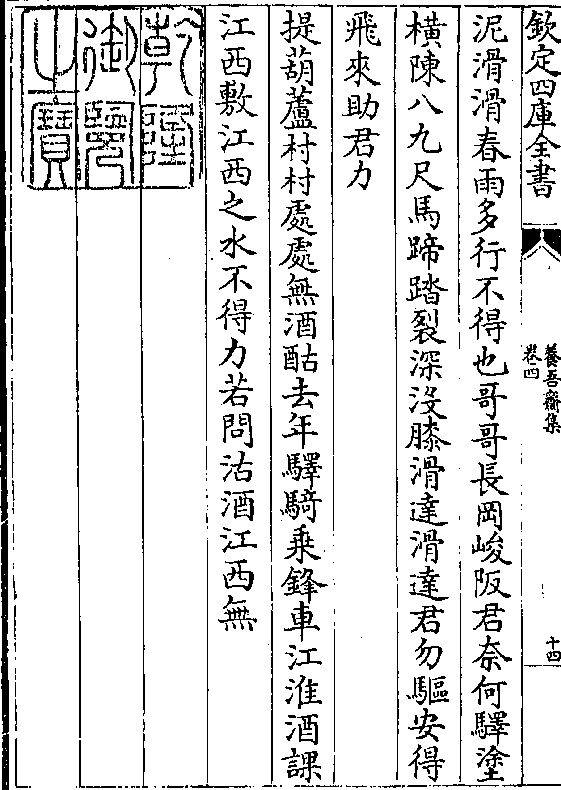 欽定四庫全書
養吾齋集
卷四
十四
泥滑滑春雨多行不得也哥哥長岡峻阪君奈何驛塗
橫陳八九尺馬蹄踏裂深没膝滑達滑達君勿驅安得
飛來助君力
提葫蘆村村處處無酒酤去年驛騎乗鋒車江淮酒課
江西敷江西之水不得力若問沽酒江西無
乾隆
御覽
之寶